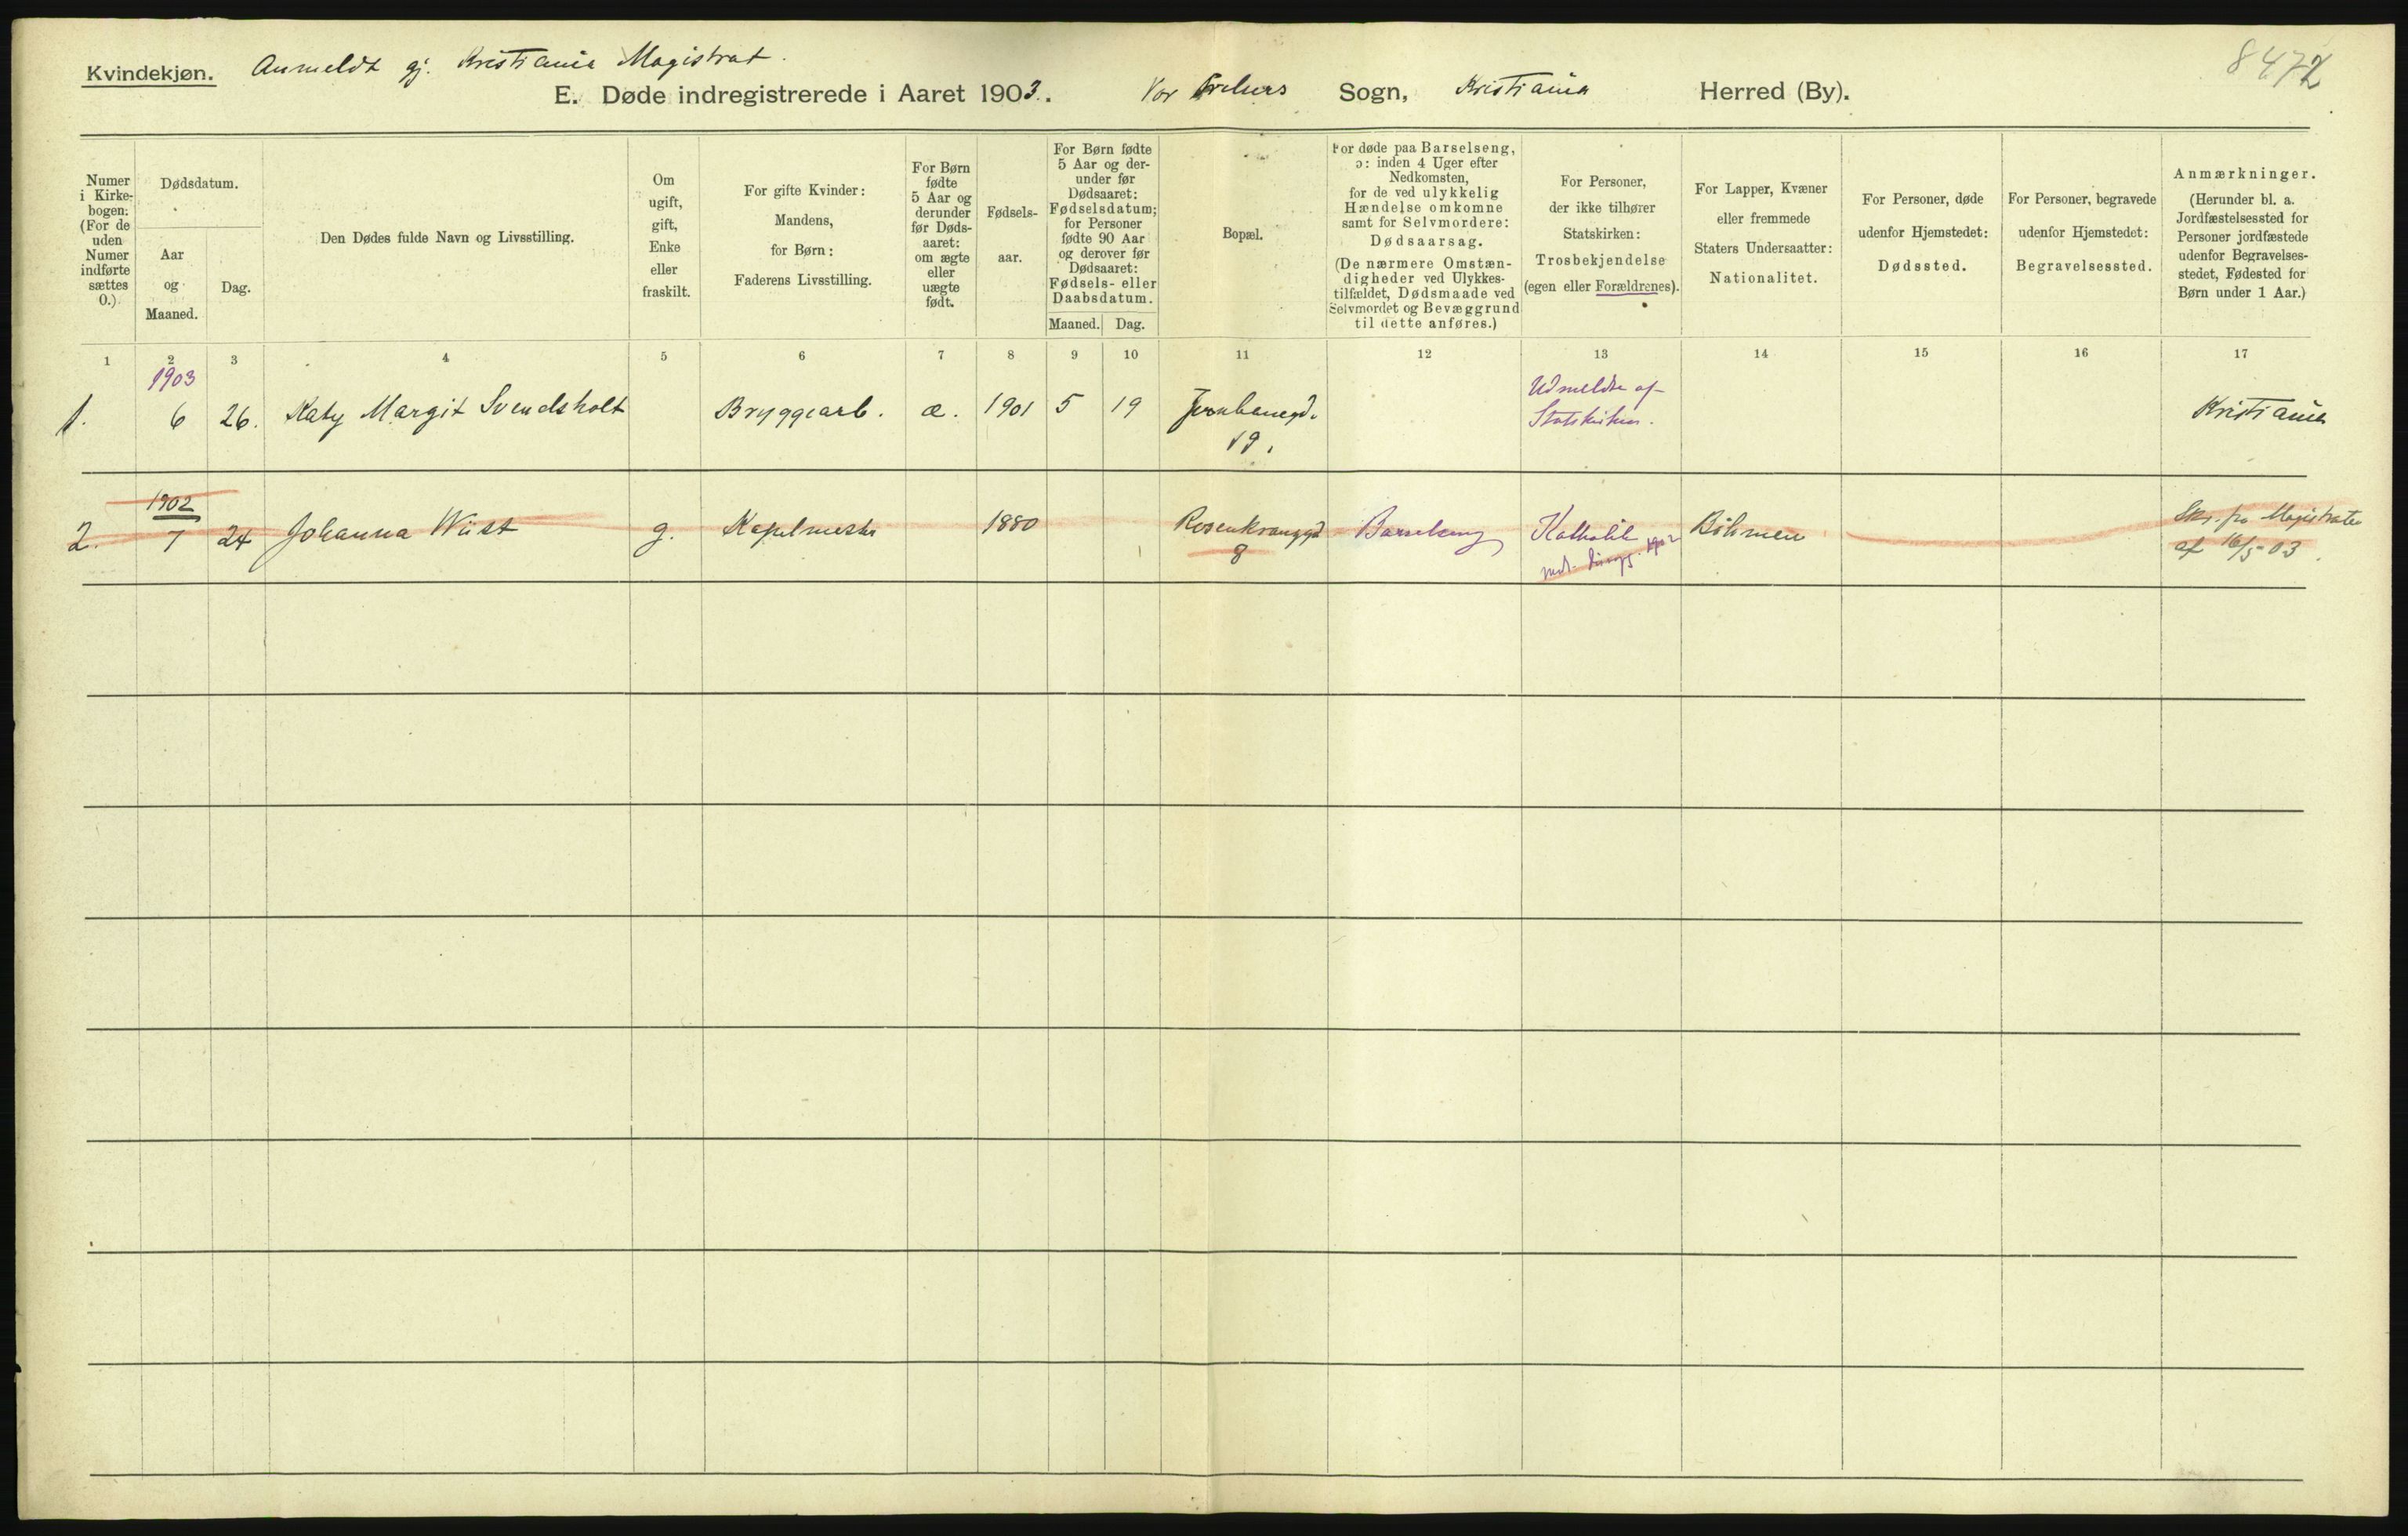 Kvindekjøn. Anmeldt gj. Kristiania Magistrat.
8472
E. Døde indregistrerede i Aaret 1903. Vor Frelsers Sogn, Kristiania Herred (By).
Numer
i Kirke-
bogen:
(For de
uden
Numer
indførte
sættes
0.)
Dødsdatum.
Aar
og
Maaned.
Dag.
Den Dødes fulde Navn og Livsstilling.
Om
ugift,
gift,
Enke
eller
fraskilt.
For gifte Kvinder:
Mandens,
for Børn:
Faderens Livsstilling.
For Børn
fødte
5 Aar og
derunder
før Døds-
aaret:
om ægte
eller
uægte
født.
Fødsels-
aar.
For Børn fødte
5 Aar og der-
under før
Dødsaaret:
Fødselsdatum;
for Personer
fødte 90 Aar
og derover før
Dødsaaret:
Fødsels- eller
Daabsdatum.
Maaned. Dag.
Bopæl.
For døde paa Barselseng,
ɔ: inden 4 Uger efter
Nedkomsten,
for de ved ulykkelig
Hændelse omkomne
samt for Selvmordere:
Dødsaarsag.
(De nærmere Omstæn-
digheder ved Ulykkes-
tilfældet, Dødsmaade ved
Selvmordet og Bevæggrund
til dette anføres.)
For Personer,
der ikke tilhører
Statskirken:
Trosbekjendelse
(egen eller Forældrenes).
For Lapper, Kvæner
eller fremmede
Staters Undersaatter:
Nationalitet.
For Personer, døde
udenfor Hjemstedet:
Dødssted.
For Personer, begravede
udenfor Hjemstedet:
Begravelsessted.
Anmærkninger.
(Herunder bl. a.
Jordfæstelsessted for
Personer jordfæstede
udenfor Begravelses-
stedet, Fødested for
Børn under 1 Aar.)
1 2 3 4 5 6 7 8 9 10 11 12 13 14 15 16 17
1903
1. 6 26. Katy Margit Svendsholt Bryggearb. æ. 1901 5 19 Jernbanegd.
19.
Udmeldte af
Statskirken.
Kristiania
1902
2. 7 24 Johanna Wüst g. Kapelmester 1880 Rosenkrangd
8
Barselseng Katholik
1902
Böhmen
Skr. fra Magistraten
af 16/5-03.